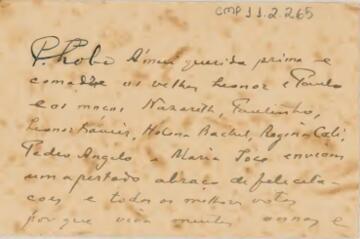 CMP 11.2.265
A minha querida prima e
comadre os velhos Leonor e Paulo
e os moços Nazareth, Paulinho,
Leonor Xavier, Helena Rachel, Regina Celi,
Pedro Angelo e Maria enviam
um apertado abraço de felicita-
ções e todos os melhores votos
por que viva muitos annos e